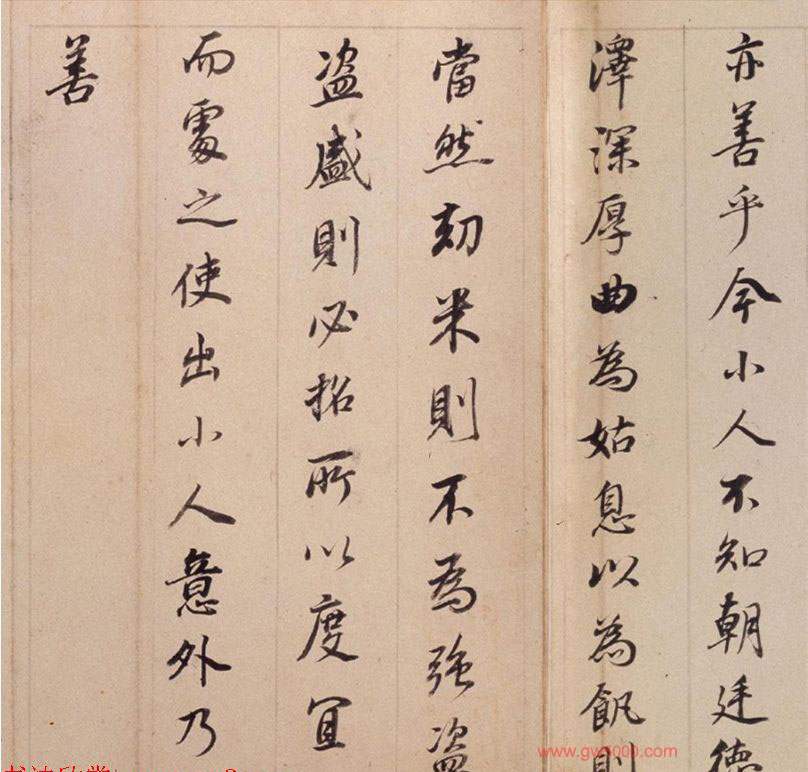 亦善乎今小人不知朝廷德
澤深厚曲為姑息以為飢則
當然劾米則不為強盜
盜盛則必招所以度宜
而處之使出小人意外乃
善
www.gw5000.com